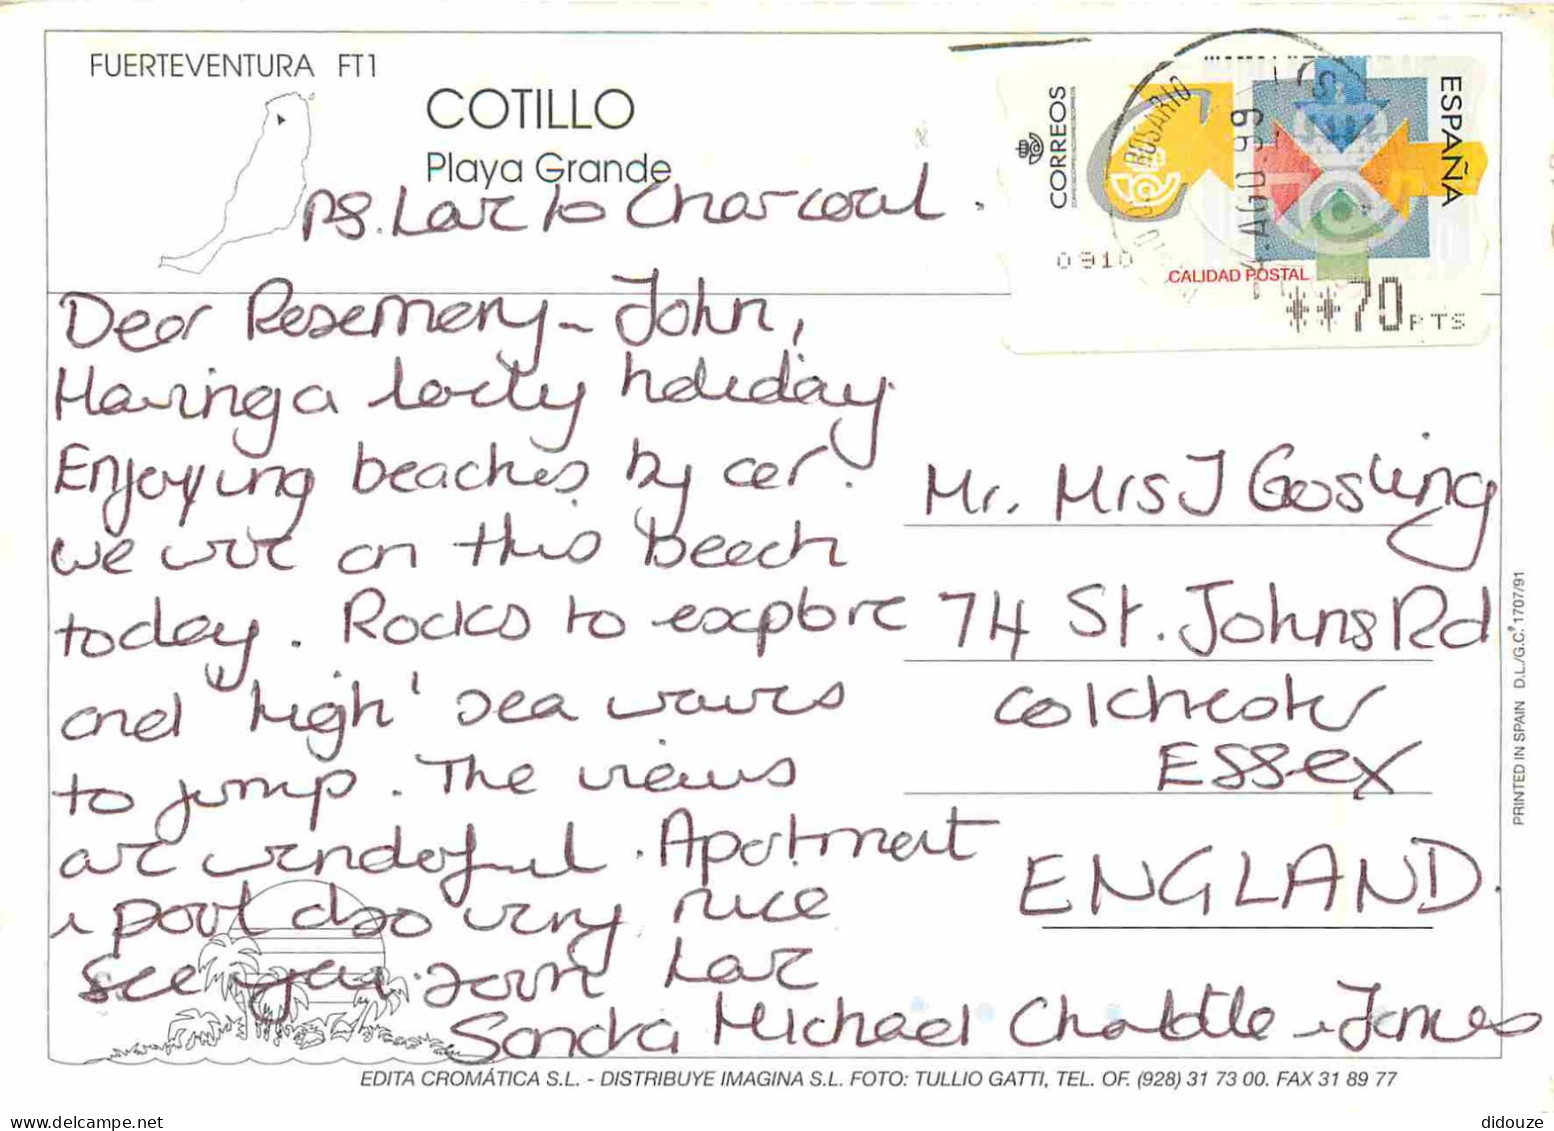 FUERTEVENTURA FT1
COTILLO
Playa Grande
PS. Love to Charcoal.
CORREOS
ESPAÑA
ROSARIO
AGO.99
0910
CALIDAD POSTAL
**70 PTS
Dear Rosemary ~ John,
Having a lovely holiday.
Enjoying beaches by car.
we are on this beach
today. Rocks to explore
and 'high' sea waves
to jump. The views
are wonderful. Apartment
& pool also very nice
see you soon love
Sandra Michael Charlotte & James
Mr. Mrs J Gosling
74 St. Johns Rd
Colchester
ESSEX
ENGLAND.
PRINTED IN SPAIN D.L./G.C. 1707/91
EDITA CROMÁTICA S.L. - DISTRIBUYE IMAGINA S.L. FOTO: TULLIO GATTI, TEL. OF. (928) 31 73 00. FAX 31 89 77
didouze